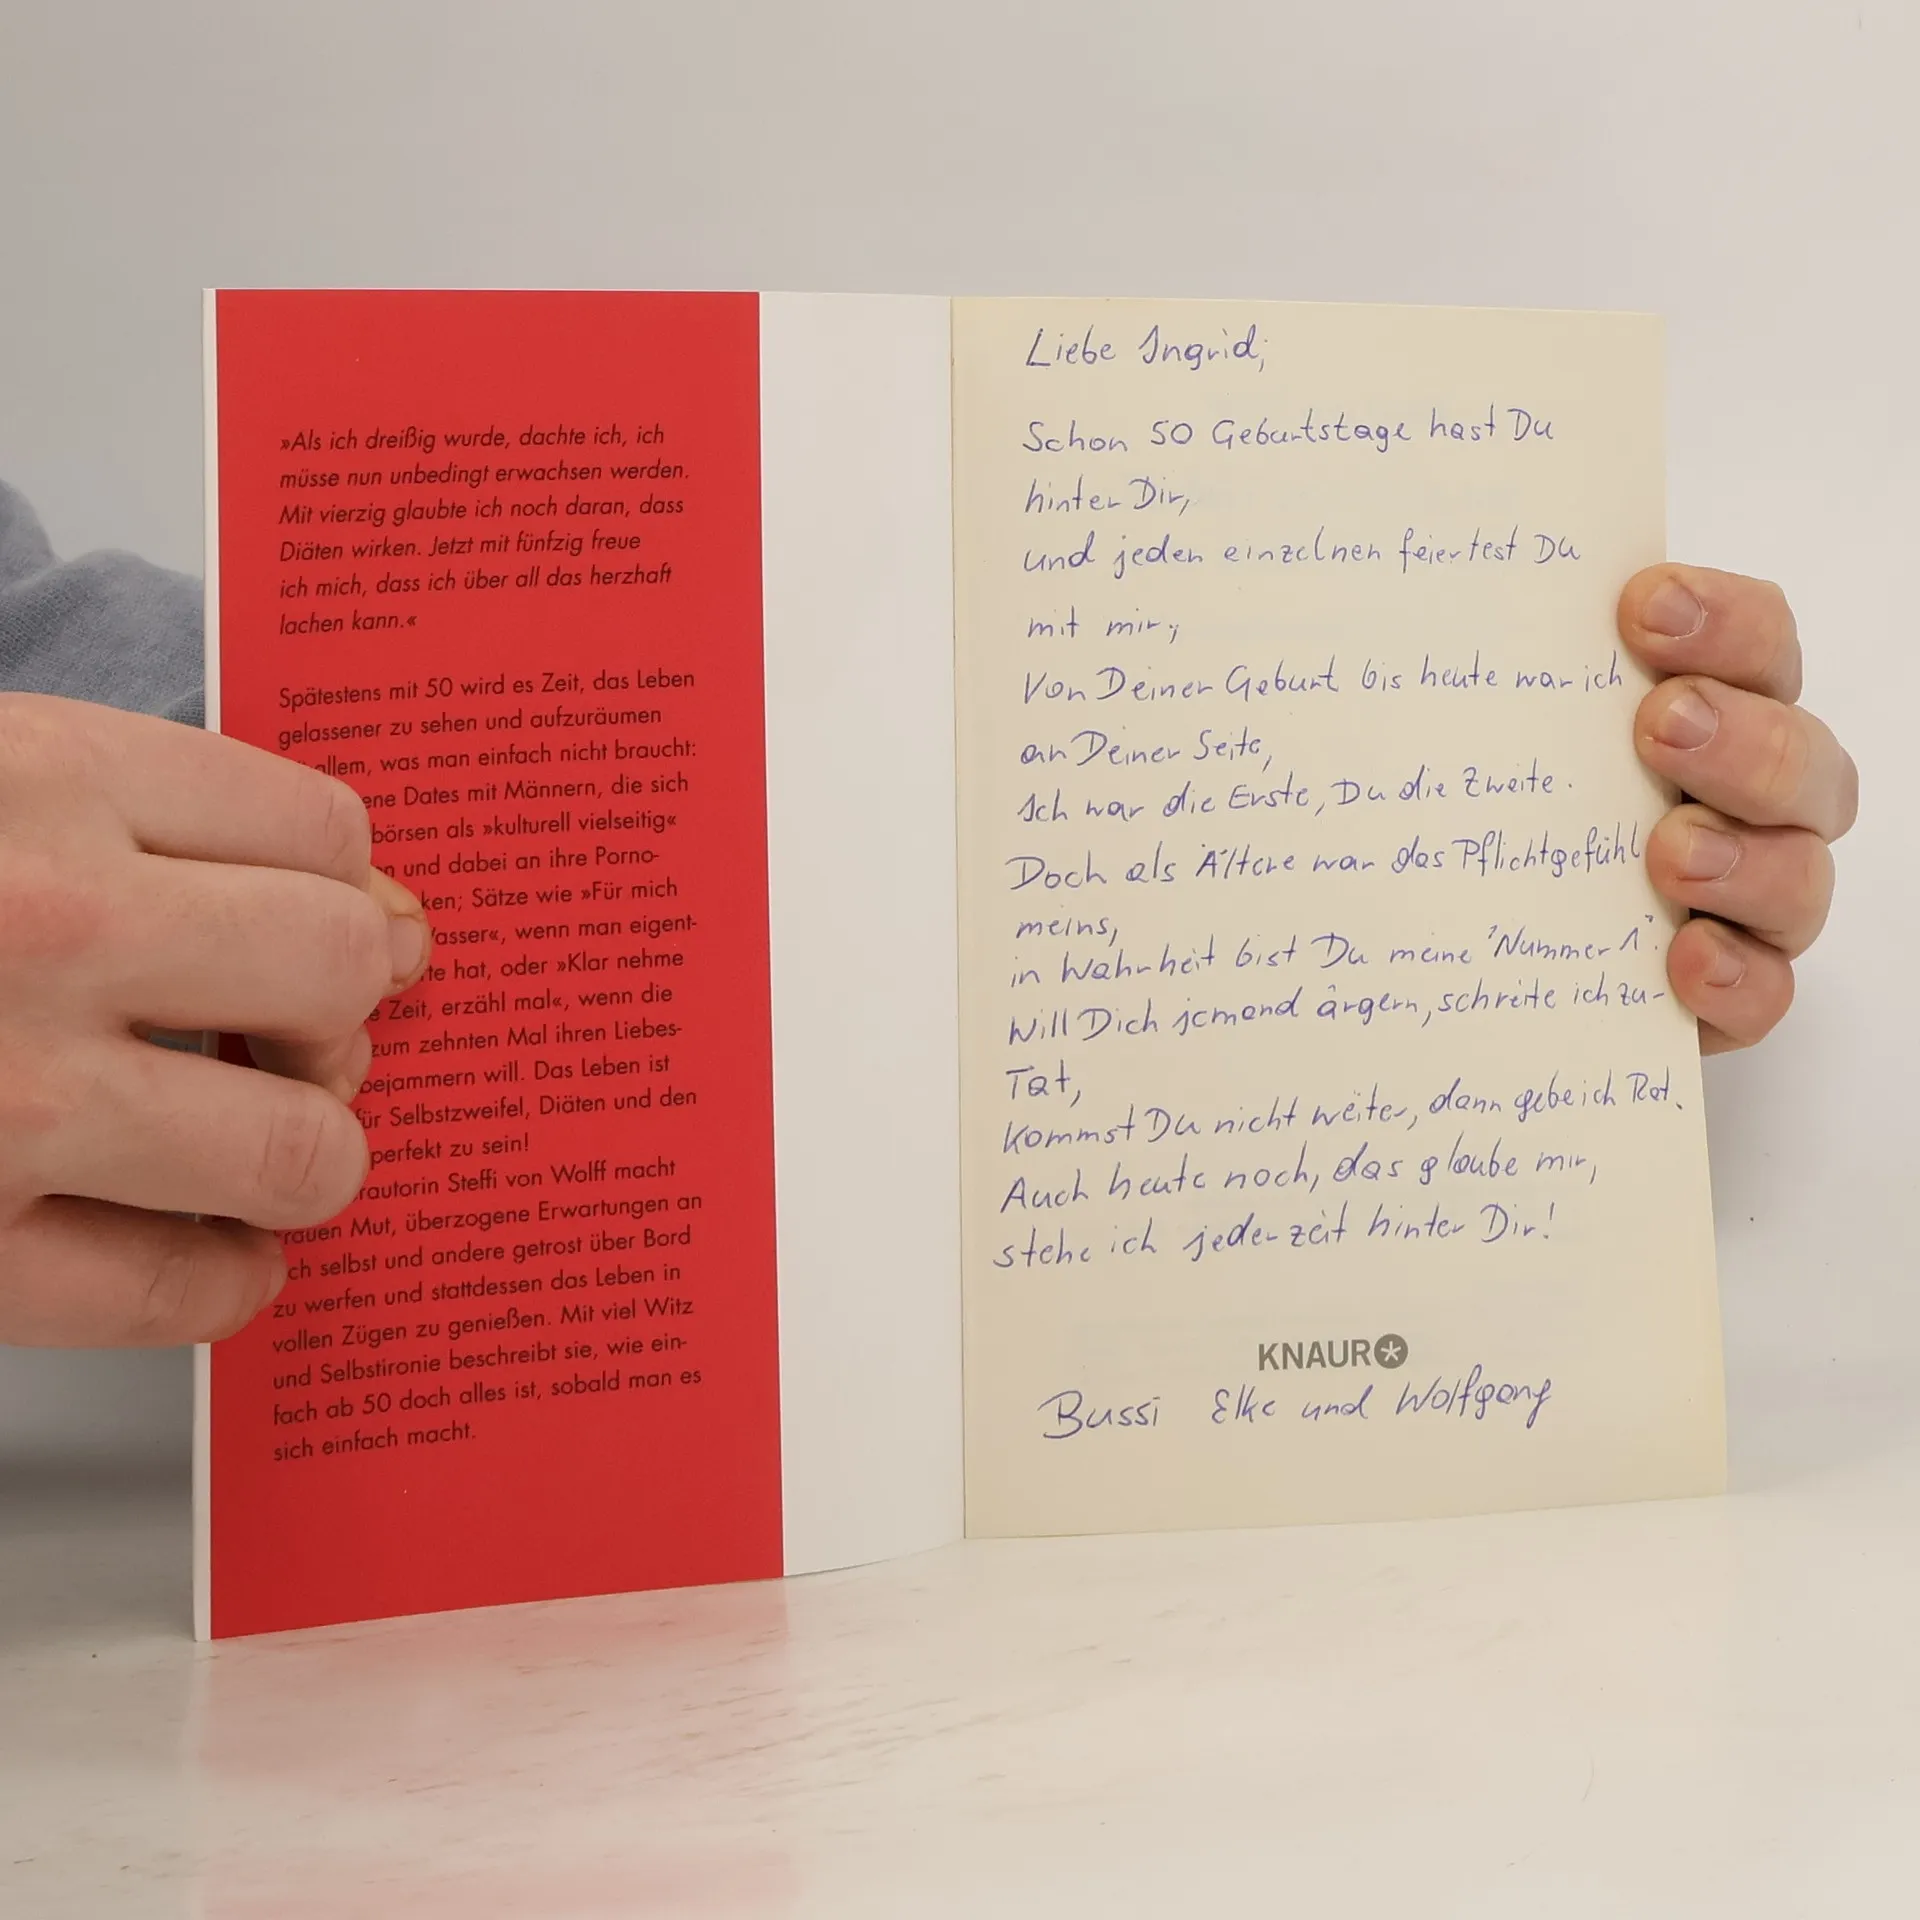 »Als ich dreißig wurde, dachte ich, ich
müsse nun unbedingt erwachsen werden.
Mit vierzig glaubte ich noch daran, dass
Diäten wirken. Jetzt mit fünfzig freue
ich mich, dass ich über all das herzhaft
lachen kann.«
Spätestens mit 50 wird es Zeit, das Leben
gelassener zu sehen und aufzuräumen
allem, was man einfach nicht braucht:
ene Dates mit Männern, die sich
börsen als »kulturell vielseitig«
n und dabei an ihre Porno-
ken; Sätze wie »Für mich
asser«, wenn man eigent-
te hat, oder »Klar nehme
e Zeit, erzähl mal«, wenn die
zum zehnten Mal ihren Liebes-
bejammern will. Das Leben ist
für Selbstzweifel, Diäten und den
perfekt zu sein!
rautorin Steffi von Wolff macht
rauen Mut, überzogene Erwartungen an
ch selbst und andere getrost über Bord
zu werfen und stattdessen das Leben in
vollen Zügen zu genießen. Mit viel Witz
und Selbstironie beschreibt sie, wie ein-
fach ab 50 doch alles ist, sobald man es
sich einfach macht.
Liebe Ingrid,
Schon 50 Geburtstage hast Du
hinter Dir,
und jeden einzelnen feiertest Du
mit mir;
Von Deiner Geburt bis heute war ich
an Deiner Seite,
Ich war die Erste, Du die Zweite.
Doch als Ältere war das Pflichtgefühl
meins,
in Wahrheit bist Du meine "Nummer 1".
Will Dich jemand ärgern, schreite ich zu-
Tat,
Kommst Du nicht weiter, dann gebe ich Rat.
Auch heute noch, das glaube mir,
stehe ich jederzeit hinter Dir!
KNAUR
Bussi Elke und Wolfgang